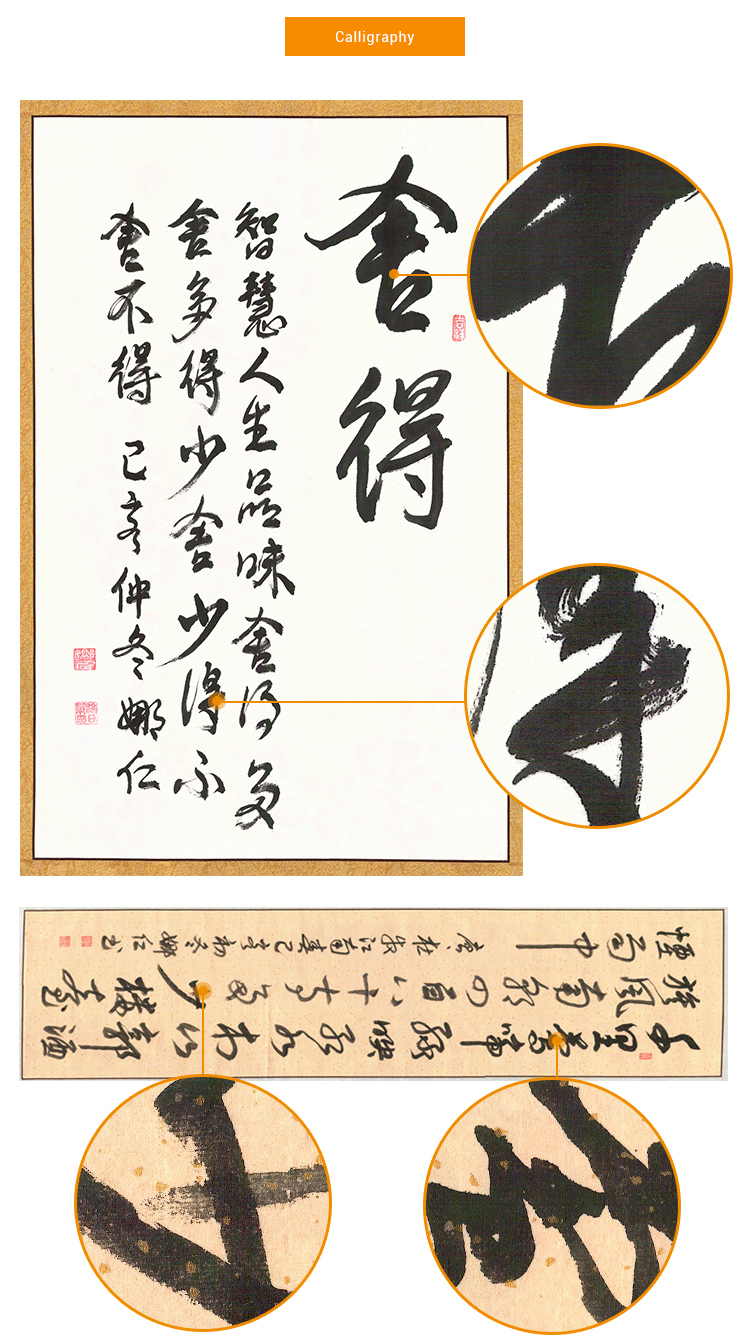 Calligraphy
舍得
智慧人生品味舍得多
舍多得少舍少得不
舍不得 己亥仲冬娜仁
千里莺啼绿映红水村山郭酒
旗风南朝四百八十寺多少楼臺
煙雨中 唐杜牧江南春己亥初冬娜仁书